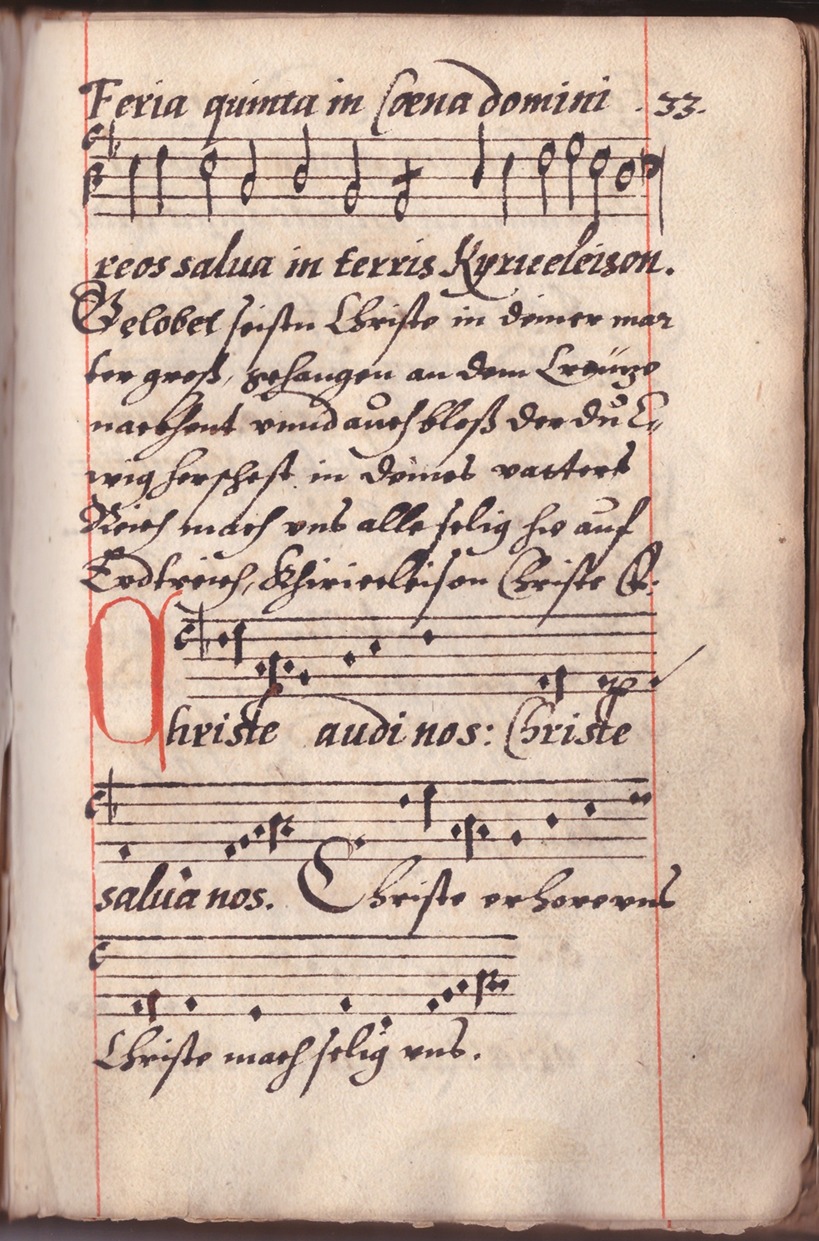 Feria quinta in Coena domini . 33.
reos salua in terris Kyrieeleison.
Gelobet seistu Christe in deiner mar
ter groß, gehangen an dem Creütze
nackhent vnnd auch bloß der du E,,
wig herschest in deines vatters
Reich mach vns alle selig hie auf
Erdtreich, Khirieeleison Christe
Christe audi nos: Christe
salua nos. Christe erhore vns
Christe mach selig vns.